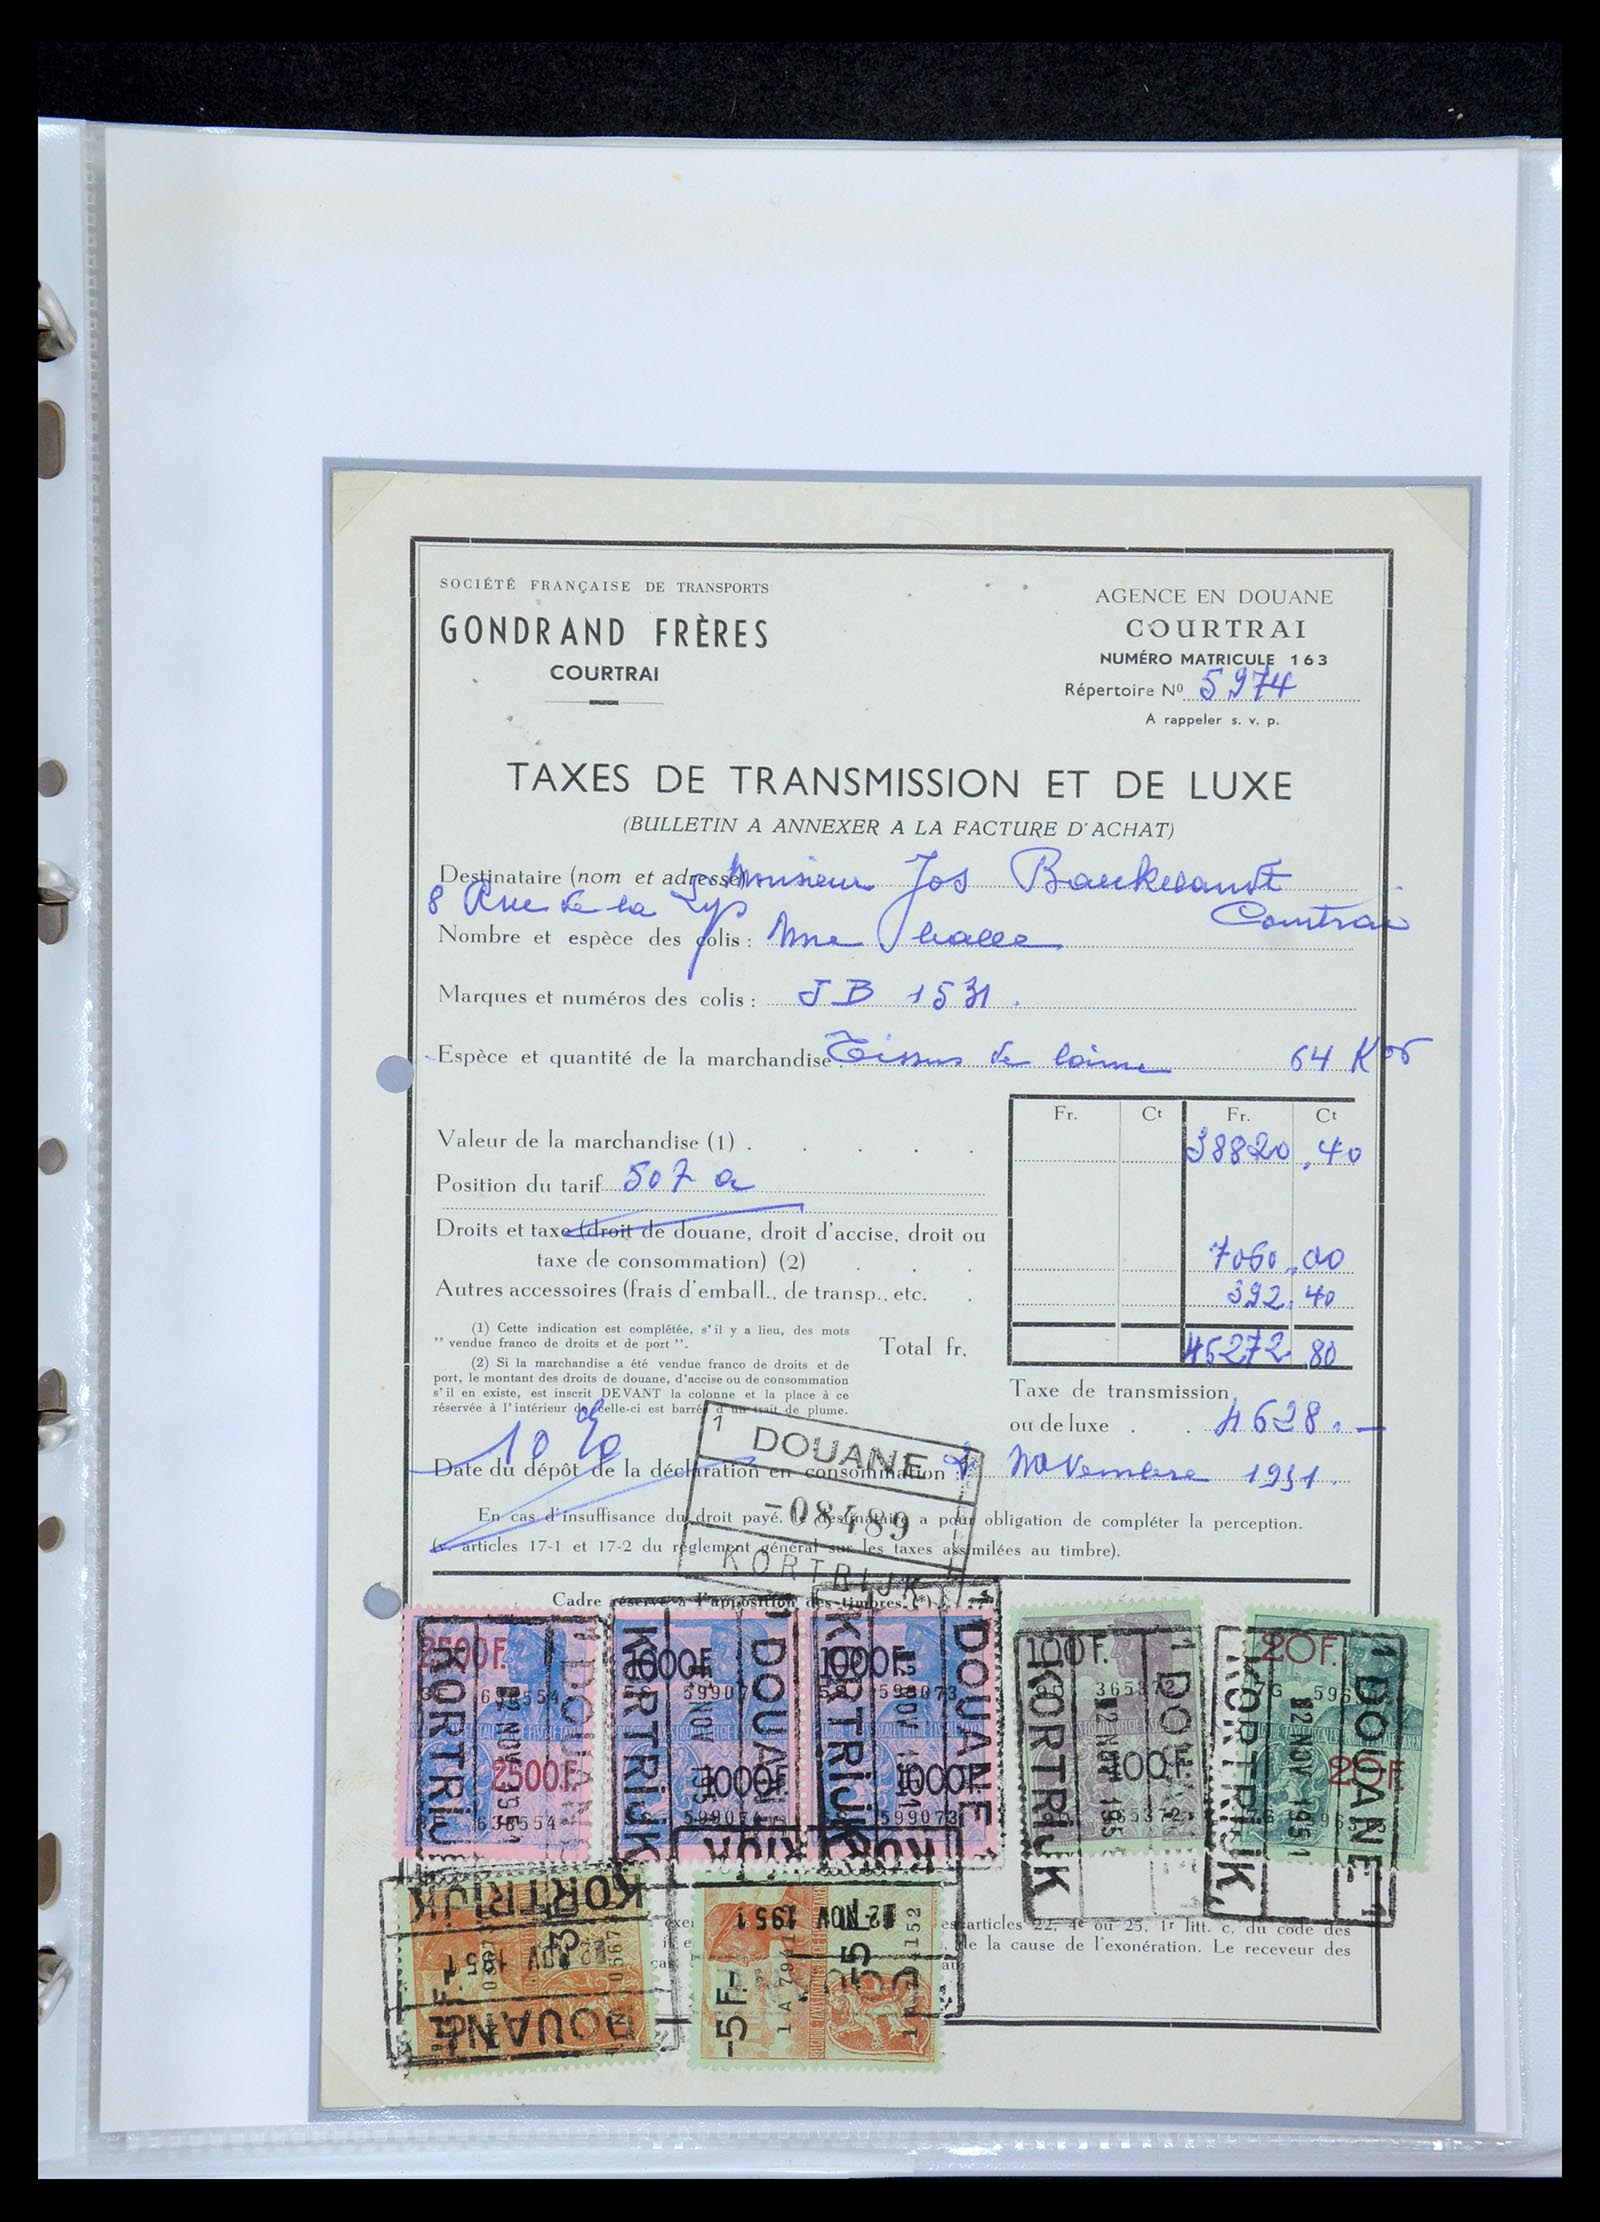 SOCIÉTÉ FRANÇAISE DE TRANSPORTS
GONDRAND FRÈRES
COURTRAI
AGENCE EN DOUANE
COURTRAI
NUMÉRO MATRICULE 163
Répertoire No 5974
A rappeler s. v. p.
TAXES DE TRANSMISSION ET DE LUXE
(BULLETIN A ANNEXER A LA FACTURE D'ACHAT)
Destinataire (nom et adresse) Monsieur Jos
8 Rue de la Lys Courtrai
Nombre et espèce des colis : Une balle
Marques et numéros des colis : JB 1531.
Espèce et quantité de la marchandise : Tissus de laine 64 Kos
Fr. Ct Fr. Ct
Valeur de la marchandise (1) . . . . . 38820.40
Position du tarif 507 a
Droits et taxe (droit de douane, droit d'accise, droit ou
taxe de consommation) (2) . . . 7060.00
Autres accessoires (frais d'emball., de transp., etc. . 392.40
(1) Cette indication est complétée, s'il y a lieu, des mots
" vendue franco de droits et de port ".
Total fr. 46272.80
(2) Si la marchandise a été vendue franco de droits et de
port, le montant des droits de douane, d'accise ou de consommation
s'il en existe, est inscrit DEVANT la colonne et la place à ce
réservée à l'intérieur de celle-ci est barrée d'un trait de plume.
Taxe de transmission
ou de luxe . . 4628.-
1 DOUANE 1
Date du dépôt de la déclaration en consommation : 2 Novembre 1951.
-08489
En cas d'insuffisance du droit payé, le destinataire a pour obligation de compléter la perception.
(v. articles 17-1 et 17-2 du règlement général sur les taxes assimilées au timbre).
KORTRIJK
Cadre réservé à l'apposition des timbres. (*)
2500F. 1000F 1000F 100F. 20F.
638554 599073 365372
KORTRIJK DOUANE KORTRIJK DOUANE KORTRIJK DOUANE KORTRIJK
2 NOV 1951
2500F. 1000F 1000F 100F. 20F.
638554 599073
KORTRIJK
2 NOV 1951
DOUANE
-2 NOV 1951
-5F.
es articles 22, 4e ou 25, 1r litt. c, du code des
de la cause de l'exonération. Le receveur des